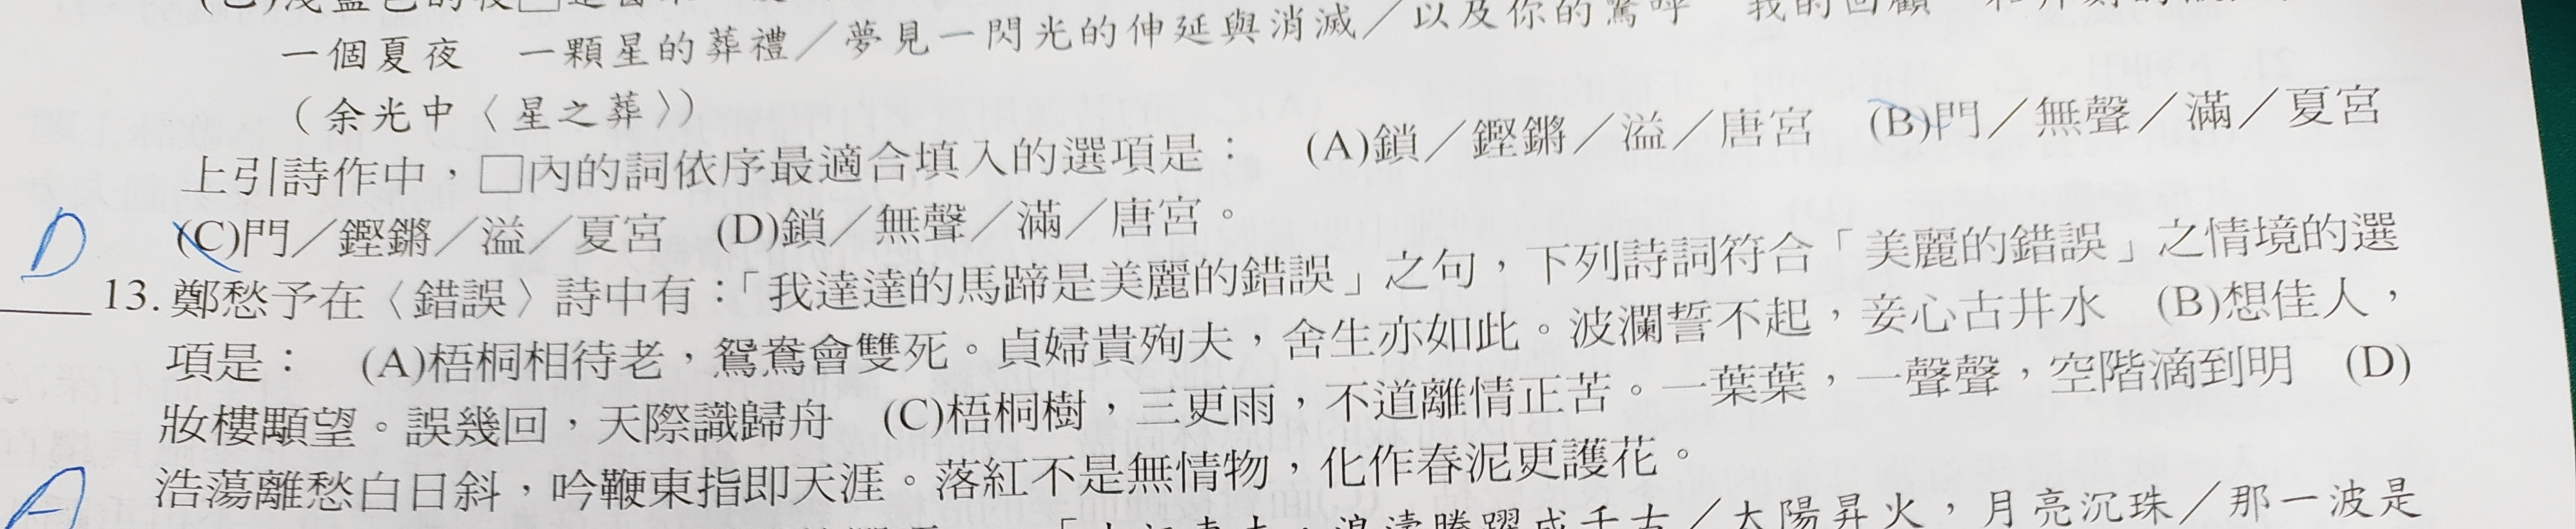 一個夏夜　一顆星的葬禮／夢見一閃光的伸延與消滅／以及你的驚呼　我的回顧
（余光中〈星之葬〉）
上引詩作中，□內的詞依序最適合填入的選項是：　(A)鎖／鏗鏘／溢／唐宮　(B)門／無聲／滿／夏宮
D (C)門／鏗鏘／溢／夏宮　(D)鎖／無聲／滿／唐宮。
13.鄭愁予在〈錯誤〉詩中有：「我達達的馬蹄是美麗的錯誤」之句，下列詩詞符合「美麗的錯誤」之情境的選
項是：　(A)梧桐相待老，鴛鴦會雙死。貞婦貴殉夫，舍生亦如此。波瀾誓不起，妾心古井水　(B)想佳人，
妝樓顒望。誤幾回，天際識歸舟　(C)梧桐樹，三更雨，不道離情正苦。一葉葉，一聲聲，空階滴到明　(D)
浩蕩離愁白日斜，吟鞭東指即天涯。落紅不是無情物，化作春泥更護花。
A 太陽昇火，月亮沉珠／那一波是